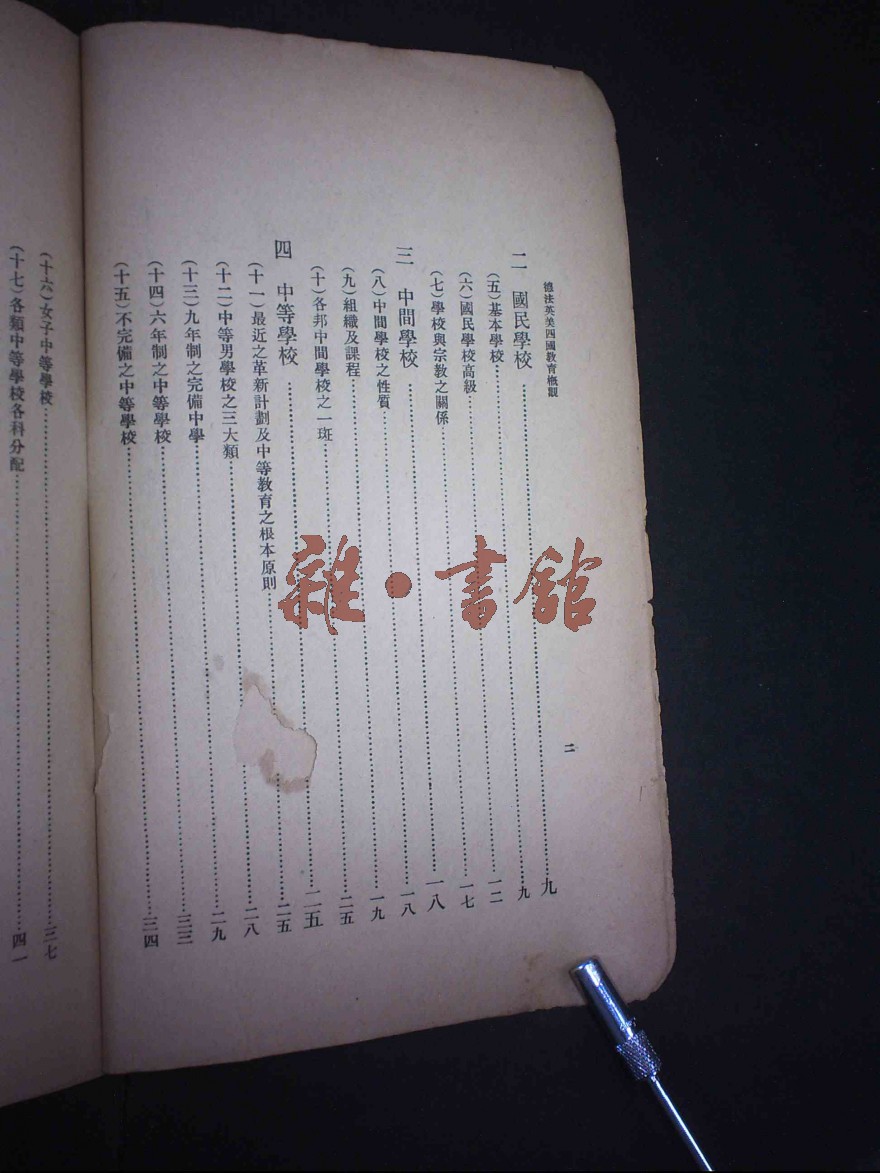 德法英美四國教育概觀
二
二 國民學校……九
(五)基本學校……九
(六)國民學校高級……一二
(七)學校與宗教之關係……一七
三 中間學校……一八
(八)中間學校之性質……一八
(九)組織及課程……一九
(十)各邦中間學校之一斑……二五
四 中等學校……二五
(十一)最近之革新計劃及中等教育之根本原則……二五
(十二)中等男學校之三大類……二八
(十三)九年制之完備中學……二九
(十四)六年制之中等學校……三三
(十五)不完備之中等學校……三四
(十六)女子中等學校……三七
(十七)各類中等學校各科分配……四一
雜·書館